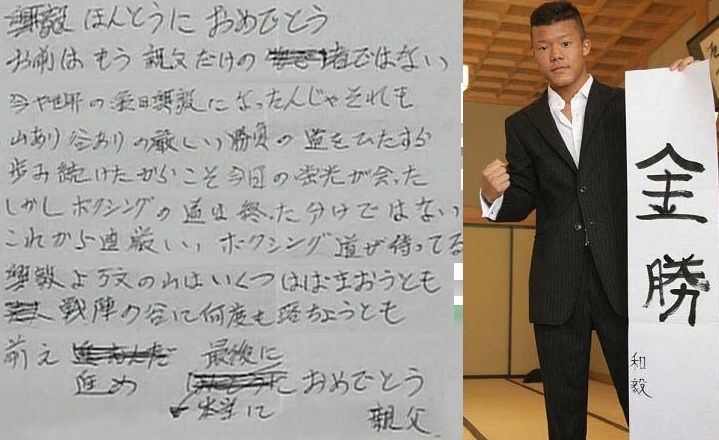 ほんとうに おめでとう
お前は もう 親父だけの 者ではない
今や世界の 毅になったんじゃそれも
山あり谷ありの厳しい 勝負の 道をひたすら
歩み続けたからこそ今日の栄光が会った
しかしボクシングの 道は 終った分けではない
これから 厳しい ボクシング 道が待ってる
よ 万丈の山はいくつ はばまおうとも
戦陣の谷に何度も 落ちようとも
前え 最後に
進め おめでとう
に
親父
金勝
和毅